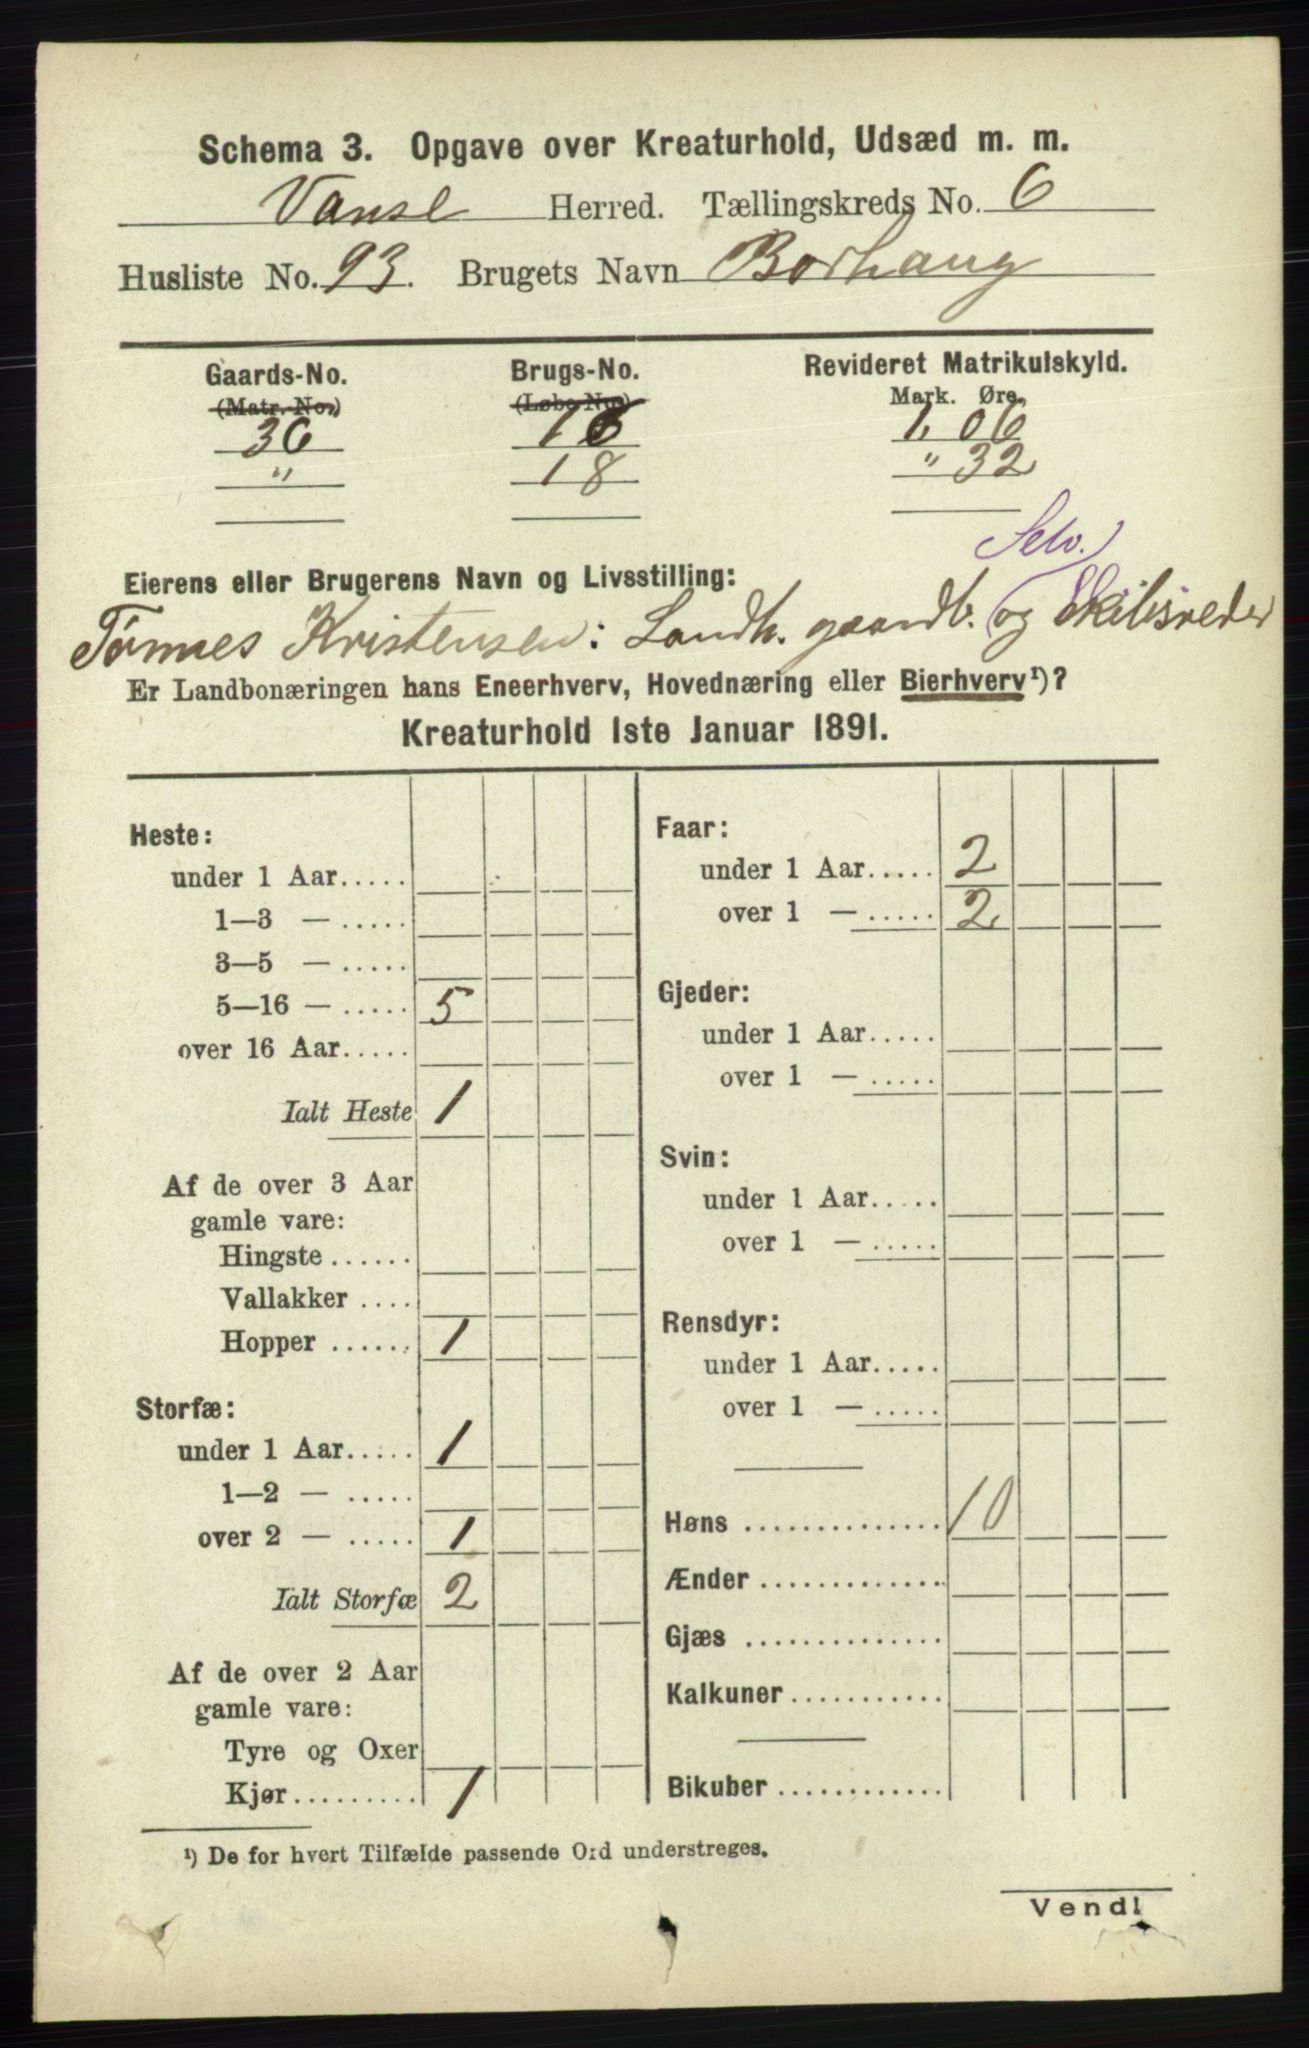 Schema 3. Opgave over Kreaturhold, Udsæd m. m.
Vanse Herred. Tællingskreds No. 6
Husliste No. 93. Brugets Navn Borhaug
Gaards-No. Brugs-No. Revideret Matrikulskyld.
(Matr.-No.) (Løbe-No.) Mark. Øre.
36 16 1, 06
" 18 " 32
Selv.
Eierens eller Brugerens Navn og Livsstilling:
Tønnes Kristensen: Landh. gaardb. og Skibsreder
Er Landbonæringen hans Eneerhverv, Hovednæring eller Bierhverv¹)?
Kreaturhold 1ste Januar 1891.
Heste:
under 1 Aar.....
1—3 — .....
3—5 — .....
5—16 — ..... 5
over 16 Aar.....
Ialt Heste 1
Af de over 3 Aar
gamle vare:
Hingste ......
Vallakker ....
Hopper ...... 1
Storfæ:
under 1 Aar..... 1
1—2 — .....
over 2 — ..... 1
Ialt Storfæ 2
Af de over 2 Aar
gamle vare:
Tyre og Oxer
Kjør......... 1
Faar:
under 1 Aar..... 2
over 1 — ..... 2
Gjeder:
under 1 Aar.....
over 1 — .....
Svin:
under 1 Aar.....
over 1 — .....
Rensdyr:
under 1 Aar.....
over 1 — .....
Høns .............. 10
Ænder .............
Gjæs ..............
Kalkuner...........
Bikuber ............
¹) De for hvert Tilfælde passende Ord understreges.
Vend!